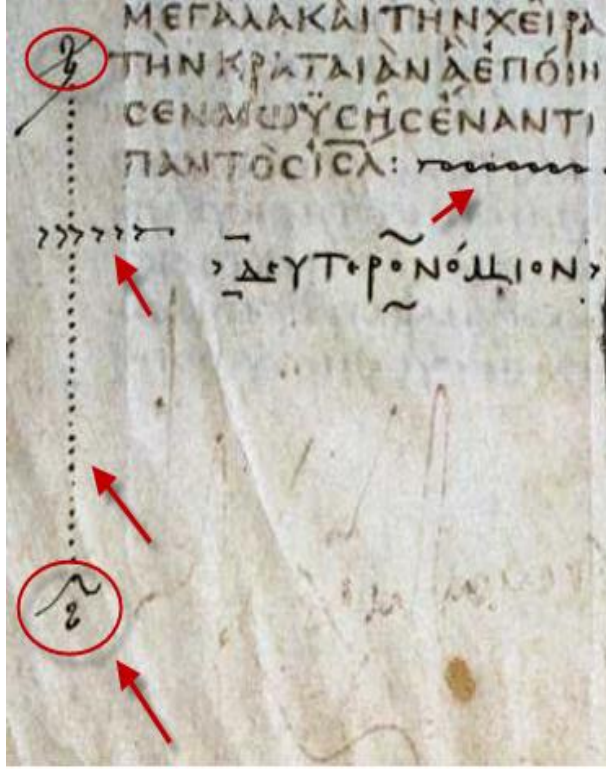 ΜΕΓΑΛΑΚΑῚΤῊΝΧΕῖΡΑ
ΤῊΝΚΡΑΤΑΙᾺΝἃἘΠΌΙΗ
ϹΕΝΜΩΫϹῆϹἜΝΑΝΤΙ
ΠΑΝΤῸϹΙ̅Ϲ̅Λ̅:
ΔΕΥΤΕΡΟΝΌΜΙΟΝ